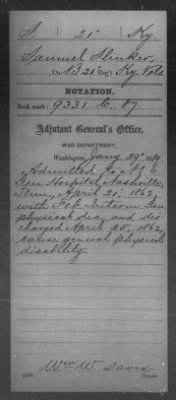 S 21 Ky
Samuel Slinker,
Co. B, 21 Reg't Ky Vols
NOTATION.
Book mark: 9331 C. 89
Adjutant General's Office,
WAR DEPARTMENT,
Washington, Jany 29", 1889
Admitted to No
Gen. Hospital, Nashville,
Tenn., April 21, 1862,
with Feb. Interm. Gen
physical des. and dis
charged April 25, 1862,
cause general physical
disability
Wm W. Davis